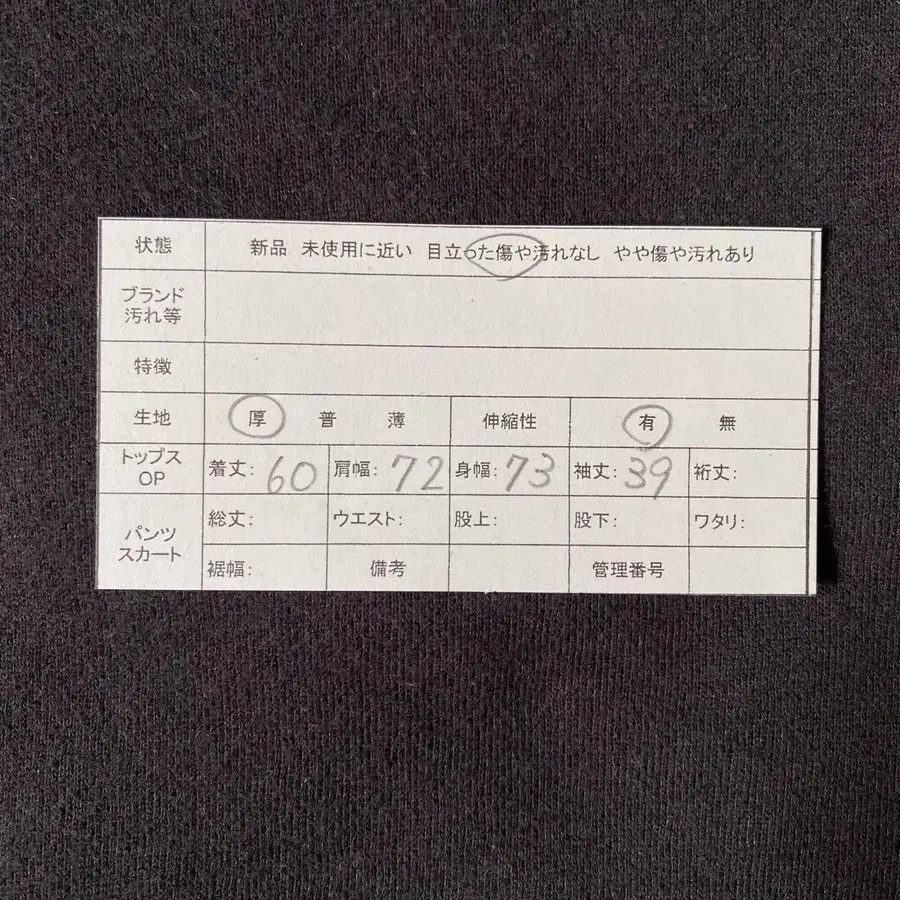 状態 新品 未使用に近い 目立った傷や汚れなし やや傷や汚れあり
ブランド
汚れ等
特徴
生地 厚 普 薄 伸縮性 有 無
トップス
OP
着丈: 60 肩幅: 72 身幅: 73 袖丈: 39 裄丈:
パンツ
スカート
総丈: ウエスト: 股上: 股下: ワタリ:
裾幅: 備考 管理番号